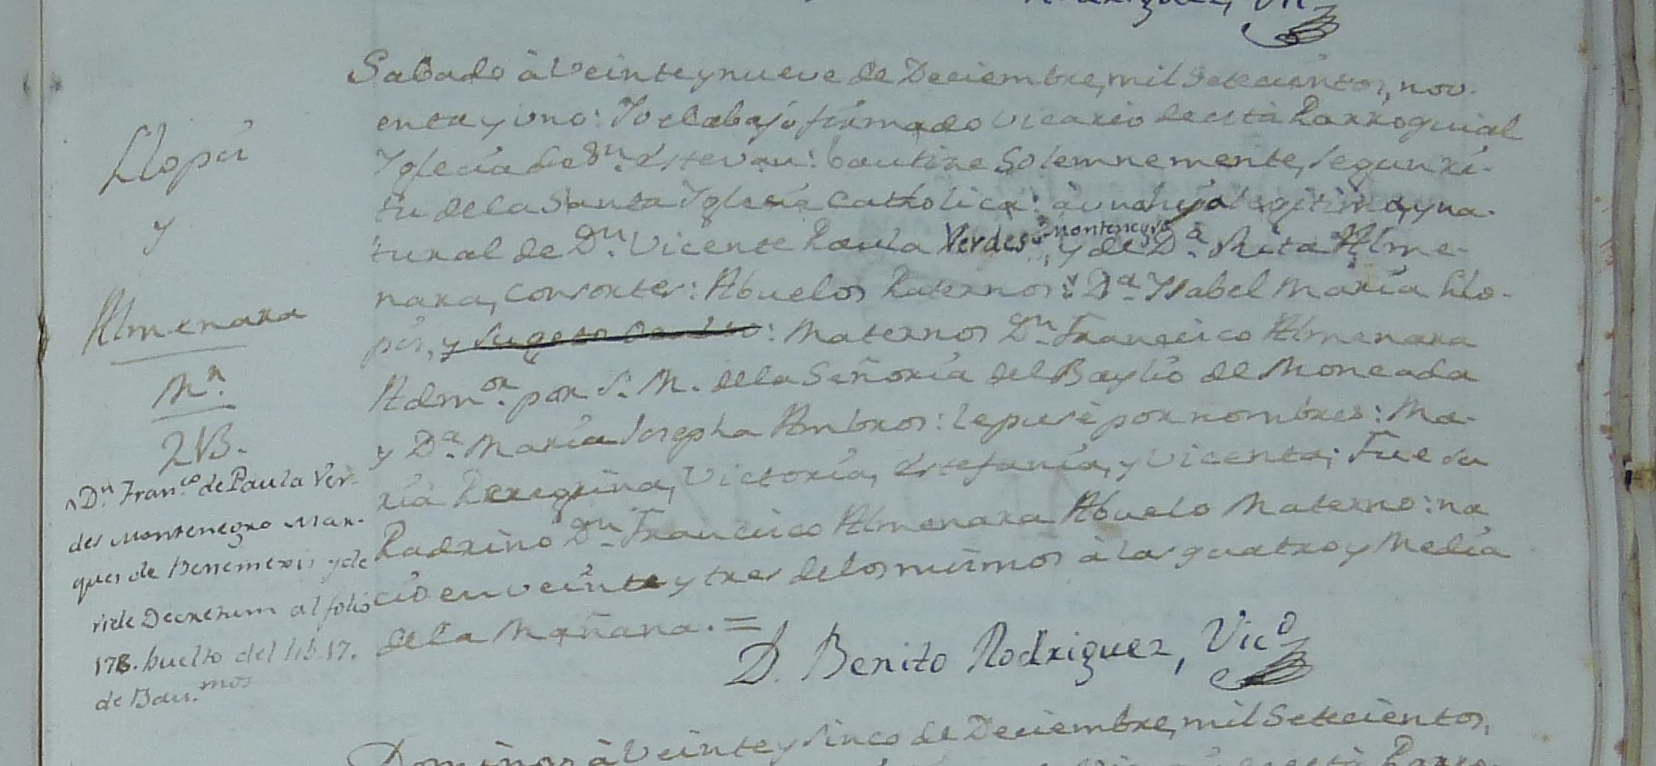 Rodriguez, Vic
Sabado à Veinte y nueve de Deciembre, mil Setecientos, nov-
enta y uno: Yo el abajo firmado Vicario de esta Parroquial
Yglecia de Sn. Estevan: bautize Solemnemente, segun ri-
tu de la Santa Yglesia Catholica: à una hija legitima, y na-
tural de Dn. Vicente Paula Verdes Montenegro, y de Da. Rita Alme-
nara, Consortes: Abuelos Paternos: Da. Ysabel Maria Llo-
pis, y Sugeto Oculto: Maternos Dn. Francisco Almenara
Admor. por S. M. de la Señoria del Baylio de Moncada
y Da. Maria Josepha Ambros: le puse por nombres: Ma-
ria Peregrina, Victoria, Estefania, y Vicenta; Fue su
Padrino Dn. Francisco Almenara Abuelo Materno: na-
ció en veinte y tres de los mismos à las quatro y Media
de la Mañana. =
D. Benito Rodriguez, Vico
Llopis
y
Almenara
Mn.
2B.
Dn. Franco. de Paula Ver-
des Montenegro Mar-
ques de Benemexis y de
vide Decretum al folio
178. buelto del lib. 17.
de Bau.mos
Domingo à Veinte y Sinco de Deciembre, mil Setecientos,